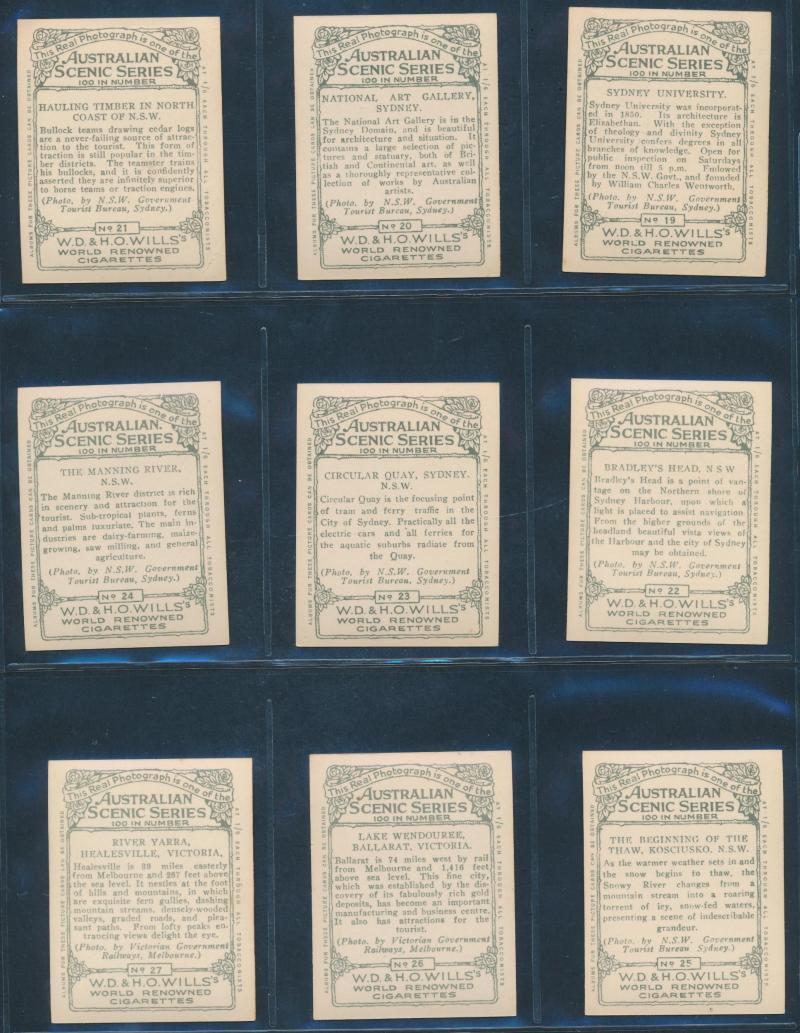 This Real Photograph is one of the
AUSTRALIAN
SCENIC SERIES
100 IN NUMBER
HAULING TIMBER IN NORTH
COAST OF N.S.W.
Bullock teams drawing cedar logs
are a never-failing source of attrac-
tion to the tourist. This form of
traction is still popular in the tim-
ber districts. The teamster trains
his bullocks, and it is confidently
asserted they are infinitely superior
to horse teams or traction engines.
(Photo, by N.S.W. Government
Tourist Bureau, Sydney.)
No 21
W.D. & H.O. WILLS's
WORLD RENOWNED
CIGARETTES
ALBUMS FOR THESE PICTURE CARDS CAN BE OBTAINED
AT 1/6 EACH THROUGH ALL TOBACCONISTS
This Real Photograph is one of the
AUSTRALIAN
SCENIC SERIES
100 IN NUMBER
NATIONAL ART GALLERY,
SYDNEY.
The National Art Gallery is in the
Sydney Domain, and is beautiful
for architecture and situation. It
contains a large selection of pic-
tures and statuary, both of Bri-
tish and Continental art, as well
as a thoroughly representative col-
lection of works by Australian
artists.
(Photo, by N.S.W. Government
Tourist Bureau, Sydney.)
No 20
W.D. & H.O. WILLS's
WORLD RENOWNED
CIGARETTES
ALBUMS FOR THESE PICTURE CARDS CAN BE OBTAINED
AT 1/6 EACH THROUGH ALL TOBACCONISTS
This Real Photograph is one of the
AUSTRALIAN
SCENIC SERIES
100 IN NUMBER
SYDNEY UNIVERSITY.
Sydney University was incorporat-
ed in 1850. Its architecture is
Elizabethan. With the exception
of theology and divinity Sydney
University confers degrees in all
branches of knowledge. Open for
public inspection on Saturdays
from noon till 5 p.m. Endowed
by the N.S.W. Govt., and founded
by William Charles Wentworth.
(Photo, by N.S.W. Government
Tourist Bureau, Sydney.)
No 19
W.D. & H.O. WILLS's
WORLD RENOWNED
CIGARETTES
ALBUMS FOR THESE PICTURE CARDS CAN BE OBTAINED
AT 1/6 EACH THROUGH ALL TOBACCONISTS
This Real Photograph is one of the
AUSTRALIAN.
SCENIC SERIES
100 IN NUMBER
THE MANNING RIVER,
N.S.W.
The Manning River district is rich
in scenery and attraction for the
tourist. Sub-tropical plants, ferns
and palms luxuriate. The main in-
dustries are dairy-farming, maize-
growing, saw milling, and general
agriculture.
(Photo, by N.S.W. Government
Tourist Bureau, Sydney.)
No 24
W.D. & H.O. WILLS's
WORLD RENOWNED
CIGARETTES
ALBUMS FOR THESE PICTURE CARDS CAN BE OBTAINED
AT 1/6 EACH THROUGH ALL TOBACCONISTS
This Real Photograph is one of the
AUSTRALIAN
SCENIC SERIES
100 IN NUMBER
CIRCULAR QUAY, SYDNEY.
N.S.W.
Circular Quay is the focusing point
of tram and ferry traffic in the
City of Sydney. Practically all the
electric cars and all ferries for
the aquatic suburbs radiate from
the Quay.
(Photo, by N.S.W. Government
Tourist Bureau, Sydney.)
No 23
W.D. & H.O. WILLS's
WORLD RENOWNED
CIGARETTES
ALBUMS FOR THESE PICTURE CARDS CAN BE OBTAINED
AT 1/6 EACH THROUGH ALL TOBACCONISTS
This Real Photograph is one of the
AUSTRALIAN
SCENIC SERIES
100 IN NUMBER
BRADLEY'S HEAD, N S W
Bradley's Head is a point of van-
tage on the Northern shore of
Sydney Harbour, upon which a
light is placed to assist navigation.
From the higher grounds of the
headland beautiful vista views of
the Harbour and the city of Sydney
may be obtained.
(Photo, by N.S.W. Government
Tourist Bureau, Sydney.)
No 22
W.D. & H.O. WILLS's
WORLD RENOWNED
CIGARETTES
ALBUMS FOR THESE PICTURE CARDS CAN BE OBTAINED
AT 1/6 EACH THROUGH ALL TOBACCONISTS
This Real Photograph is one of the
AUSTRALIAN
SCENIC SERIES
100 IN NUMBER
RIVER YARRA,
HEALESVILLE, VICTORIA,
Healesville is 39 miles easterly
from Melbourne and 267 feet above
the sea level. It nestles at the foot
of hills and mountains, in which
are exquisite fern gullies, dashing
mountain streams, densely-wooded
valleys, graded roads, and plea-
sant paths. From lofty peaks en-
trancing views delight the eye.
(Photo. by Victorian Government
Railways, Melbourne.)
No 27
W.D. & H.O. WILLS's
WORLD RENOWNED
CIGARETTES
ALBUMS FOR THESE PICTURE CARDS CAN BE OBTAINED
AT 1/6 EACH THROUGH ALL TOBACCONISTS
This Real Photograph is one of the
AUSTRALIAN
SCENIC SERIES
100 IN NUMBER
LAKE WENDOUREE,
BALLARAT, VICTORIA.
Ballarat is 74 miles west by rail
from Melbourne and 1,416 feet
above sea level. This fine city,
which was established by the dis-
covery of its fabulously rich gold
deposits, has become an important
manufacturing and business centre.
It also has attractions for the
tourist.
(Photo, by Victorian Government
Railways, Melbourne.)
No 26
W.D. & H.O. WILLS's
WORLD RENOWNED
CIGARETTES
ALBUMS FOR THESE PICTURE CARDS CAN BE OBTAINED
AT 1/6 EACH THROUGH ALL TOBACCONISTS
This Real Photograph is one of the
AUSTRALIAN
SCENIC SERIES
100 IN NUMBER
THE BEGINNING OF THE
THAW, KOSCIUSKO, N.S.W.
As the warmer weather sets in and
the snow begins to thaw, the
Snowy River changes from a
mountain stream into a roaring
torrent of icy, snow-fed waters,
presenting a scene of indescribable
grandeur.
(Photo, by N.S.W. Government
Tourist Bureau Sydney.)
No 25
W.D. & H.O. WILLS's
WORLD RENOWNED
CIGARETTES
ALBUMS FOR THESE PICTURE CARDS CAN BE OBTAINED
AT 1/6 EACH THROUGH ALL TOBACCONISTS